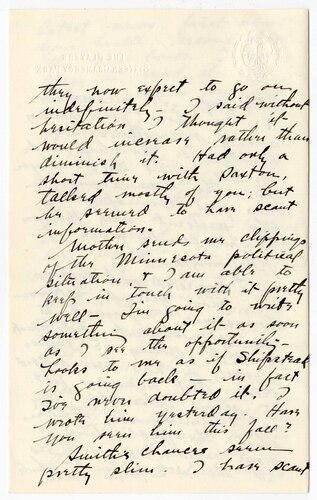 they now expect to go on
indefinitely - I said without
hesitation I thought it
would increase rather than
diminish it. Had only a
short time with Saxton,
talked mostly of you; but
he seemed to have scant
information.
Mother sends me clippings
of the Minnesota political
situation, & I am able to
keep in touch with it pretty
well - I'm going to write
something about it as soon
as I see the opportunity -
Looks to me as if Shipstead
is going back - in fact
I've never doubted it. I
wrote him yesterday. Have
you seen him this fall?
Smith's chances seem
pretty slim. I have scant